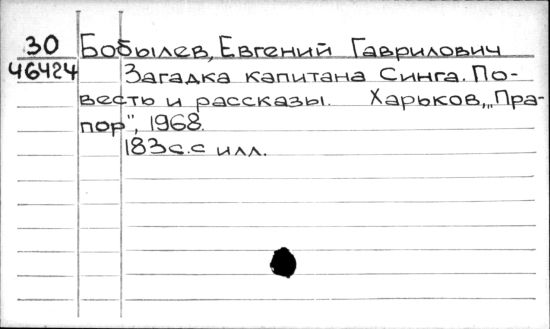 30 Бобылев, Евгений Гаврилович
46424 Загадка капитана Синга. По-
весть и рассказы. Харьков, „Пра-
пор", 1968.
183 с. с илл.